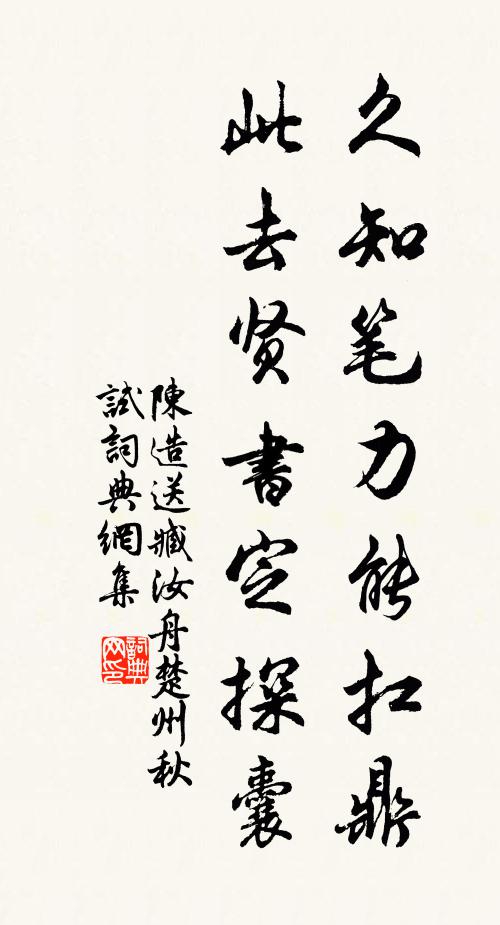 久知笔力能扛鼎
此去贤書定探囊
陳造送臧汝舟楚州秋
試詞典網集
詞典
网印